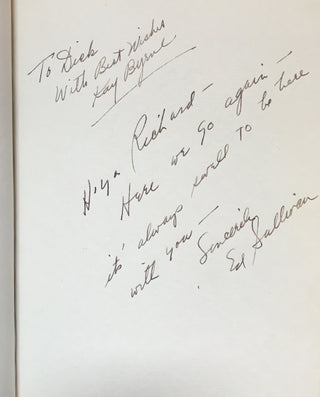 To Dick
With Best Wishes
Kay Byrne
Hiya Richard—
Here we go again—
its' always swell to be here
with you— Sincerely
Ed Sullivan